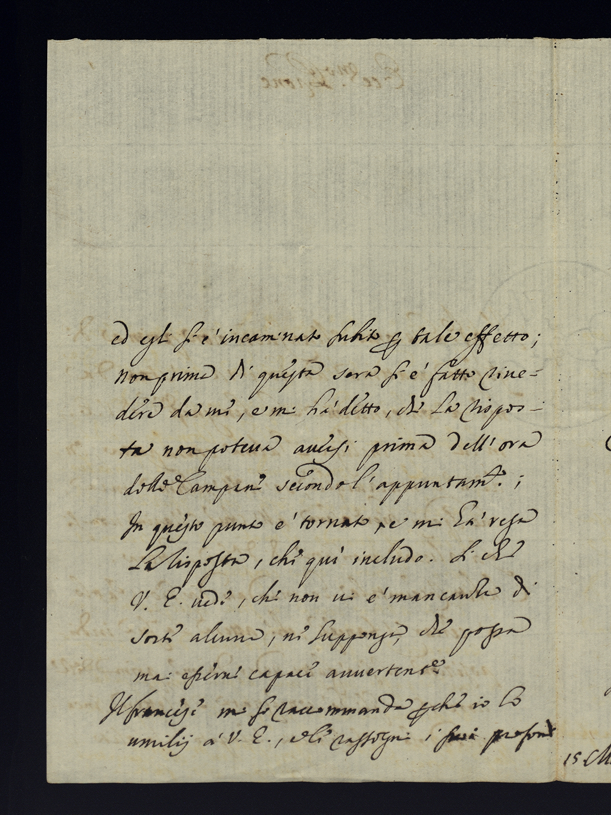 ed egli si è incaminato subito per tale effetto;
non prima di questa sera si è fatto rive-
dere da me, e mi hà detto, che la rispos-
ta non poteva aversi prima dell'ora
delle Campane secondo l'appuntam.to;
In questo punto è tornato, e mi hà resa
la risposta, che quì includo. Si che
V. E. vede, che non vi è mancanza di
sorte alcuna, nè suppongo, che possa
mai esserne capace
Il francese mi si raccommanda perche io lo
umilij à V. E., e li rassegni i suoi profon
15